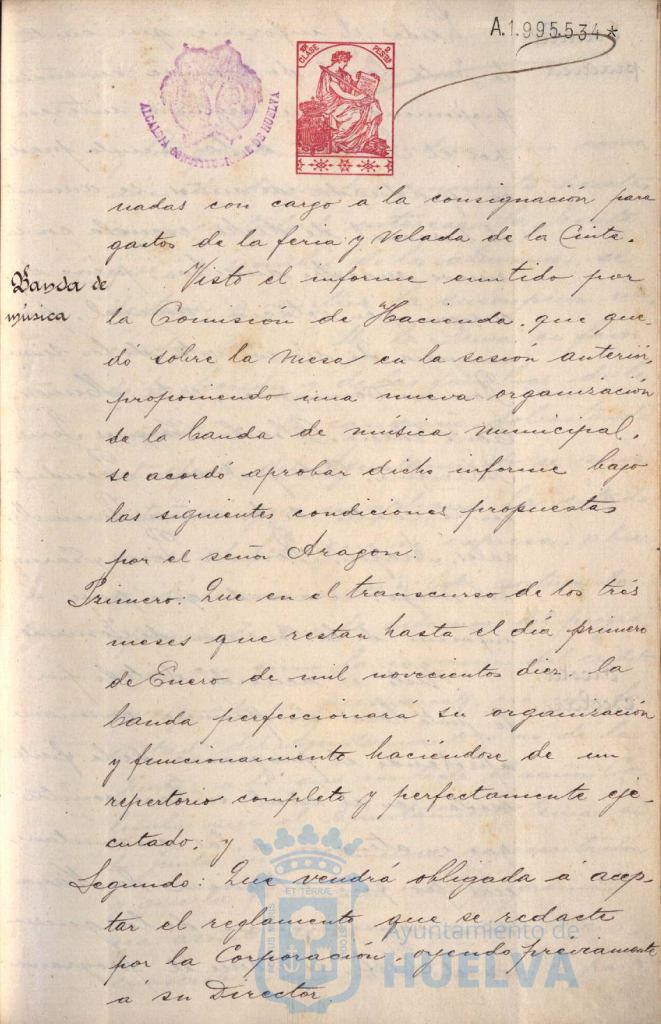 A.1.995.534*
10ª CLASE
2 PESTAS
ALCALDIA CONSTITUCIONAL DE HUELVA
nadas con cargo á la consignación para
gastos de la feria y Velada de la Cinta.
Banda de
música
Visto el informe emitido por
la Comisión de Hacienda, que que-
dó sobre la mesa en la sesión anterior,
proponiendo una nueva organización
de la banda de música municipal,
se acordó aprobar dicho informe bajo
las siguientes condiciones propuestas
por el señor Aragon.
Primero: Que en el transcurso de los trés
meses que restan hasta el día primero
de Enero de mil novecientos diez, la
banda perfeccionará su organización
y funcionamiento haciéndose de un
repertorio completo y perfectamente eje-
cutado; y
Segundo: Que vendrá obligada á acep-
tar el reglamento que se redacte
por la Corporación, oyendo préviamente
á su Director.
ET TERRÆ
PORTUS MARIS
Ayuntamiento de
HUELVA